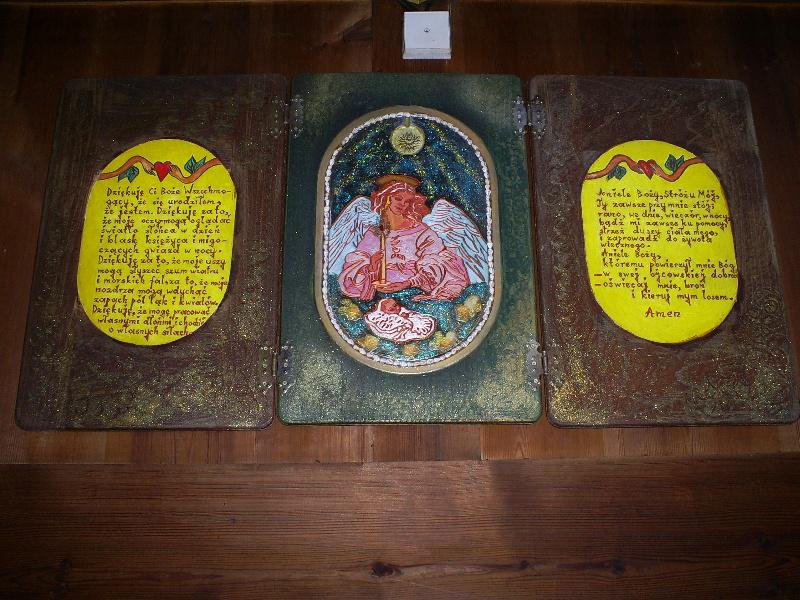 Dziękuję Ci Boże Wszechmo-
gący, że się urodziłem,
że jestem. Dziękuję za to,
że moje oczy mogą oglądać
światło słońca w dzień
i blask księżyca i migo-
czących gwiazd w nocy.
Dziękuję za to, że moje uszy
mogą słyszeć szum wiatru
i morskich fal, za to, że moje
nozdrza mogą wdychać
zapach pól łąk i kwiatów.
Dziękuję, że mogę pracować
własnymi dłońmi i chodzić
o własnych siłach.
Aniele Boży, Stróżu Mój,
Ty zawsze przy mnie stój
rano, we dnie, wieczór, w nocy
bądź mi zawsze ku pomocy,
strzeż duszy ciała mego,
i zaprowadź do żywota
wiecznego.
Aniele Boży,
któremu powierzył mnie Bóg
— w swej ojcowskiej dobroci
— oświecaj mnie, broń
i kieruj mym losem.
Amen